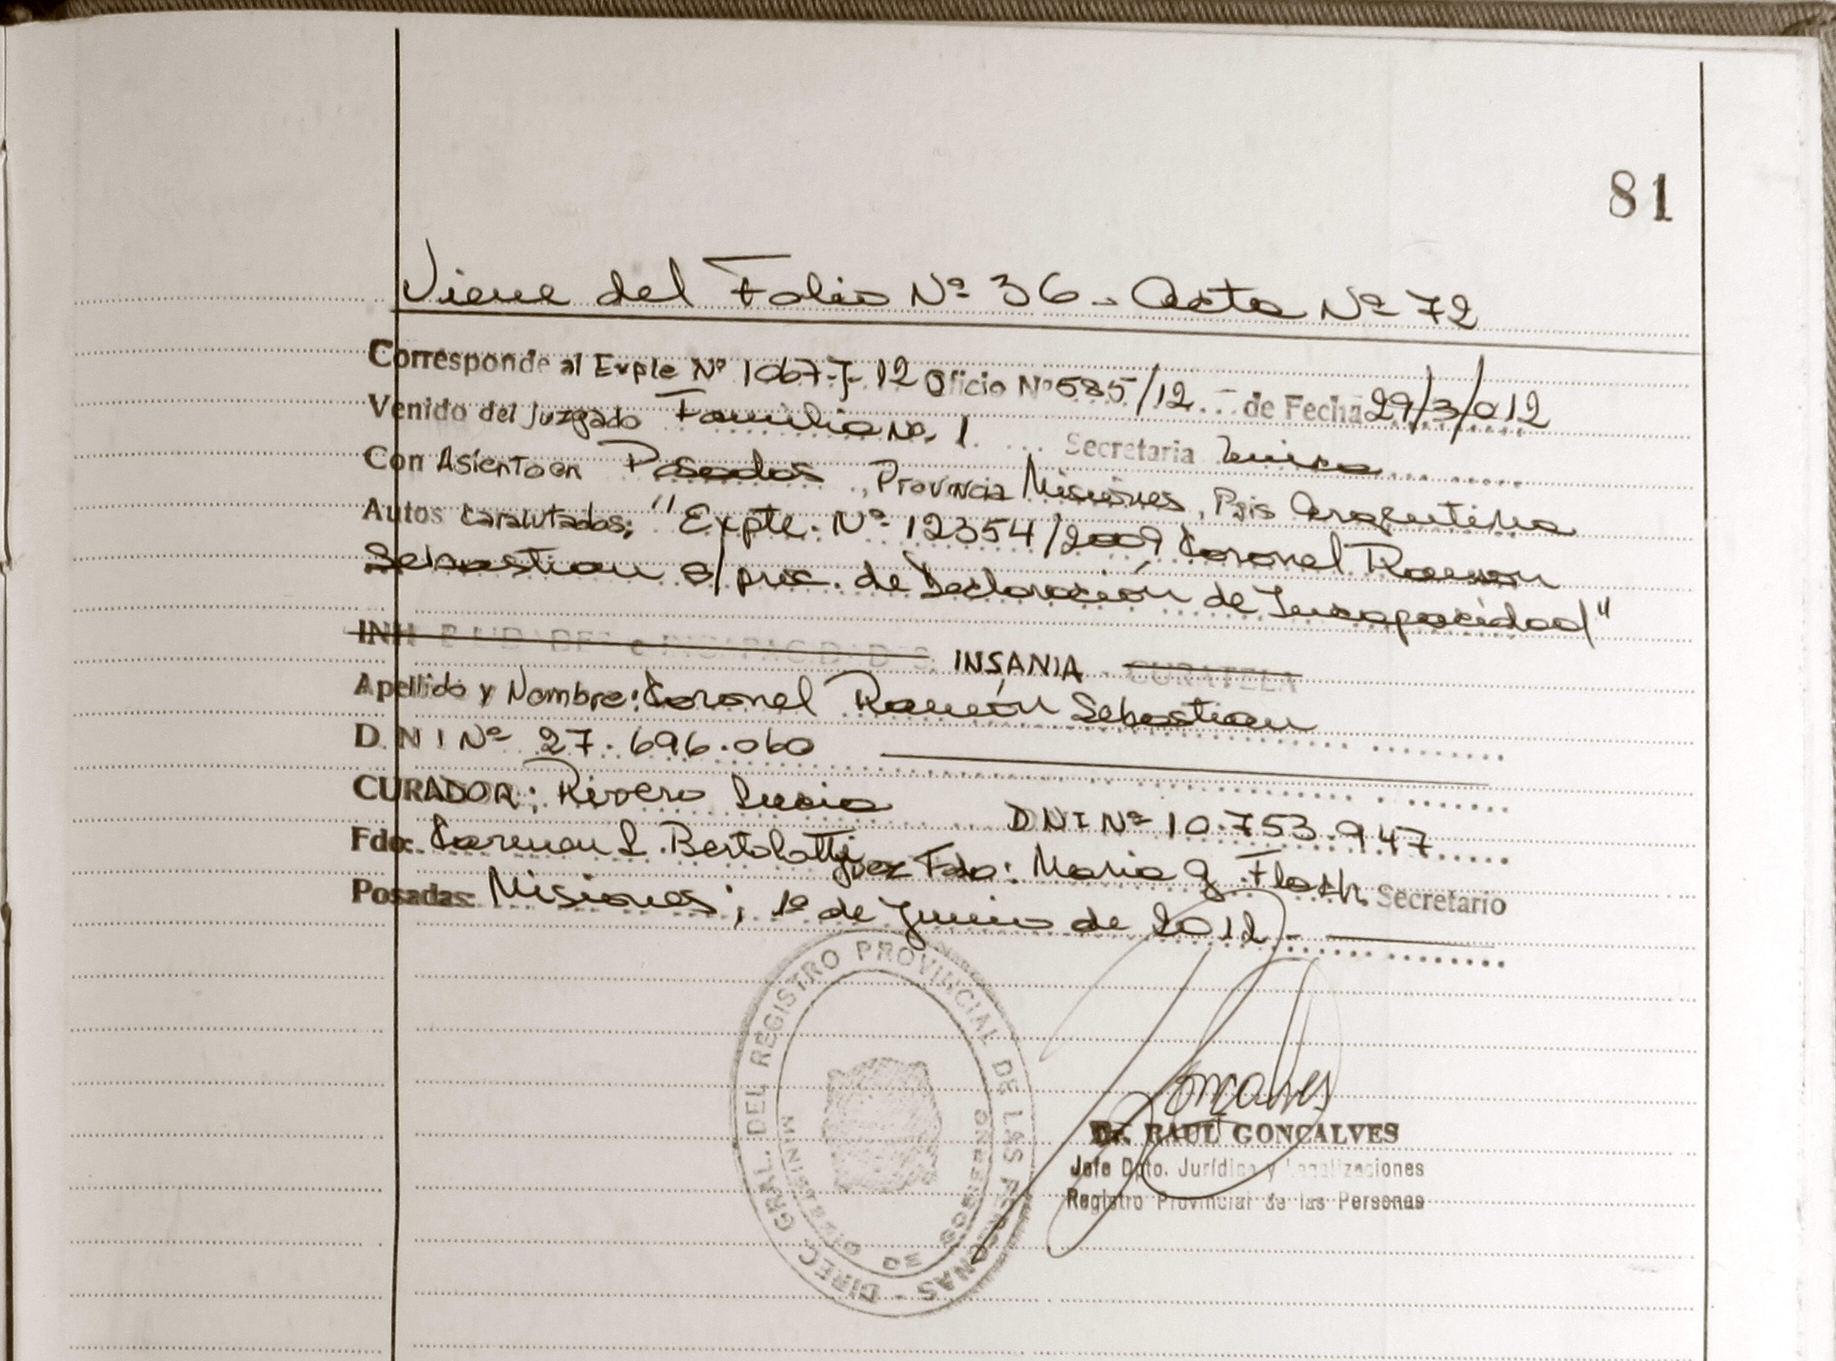 81
Viene del Folio Nº 36 - Acta Nº 72
Corresponde al Exple Nº 1067-J-12 Oficio Nº 585/12 - de Fecha 29/3/012
Venido del Juzgado Familia Nº 1 Secretaria Unica
Con Asiento en Posadas, Provincia Misiones, Pais Argentina
Autos caratutados: "Expte. Nº 12354/2009 Coronel Ramon
Sebastian s/ proc. de Declaración de Incapacidad"
INSANIA - CURATELA
Apellido y Nombre: Coronel Ramón Sebastian
D N I Nº 27.696.060
CURADOR: Rivero Lucia DNI Nº 10.753.947
Fdo: Carmen L. Bertolotti Juez Fdo: Maria G. Secretario
Posadas Misiones; 1º de Junio de 2012 -
DIREC. GRAL. DEL REGISTRO PROVINCIAL DE LAS PERSONAS
MINISTERIO DE GOBIERNO
Gonçalves
Dr. RAUL GONCALVES
Jefe Dpto. Jurídico y Legalizaciones
Registro Provincial de las Personas